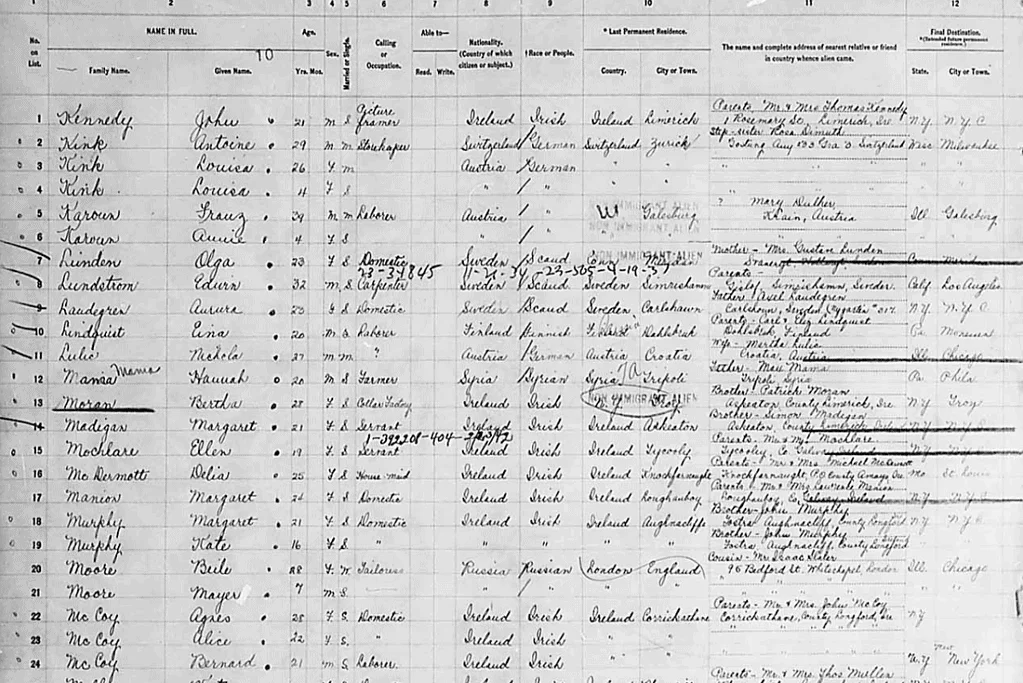 1 2 3 4 5 6 7 8 9 10 11 12
No. on List. NAME IN FULL. Age. Sex. Married or Single. Calling or Occupation. Able to— Nationality. (Country of which citizen or subject.) † Race or People. * Last Permanent Residence. The name and complete address of nearest relative or friend in country whence alien came. Final Destination.
Family Name. Given Name. 10 Yrs. Mos. Read. Write. Country. City or Town. State. City or Town.
1 Kennedy John 21 m S Picture framer Ireland Irish Ireland Limerick Parents, Mr. & Mrs Thomas Kennedy 1 Rosemary St. Limerick, Ire. N.Y. N.Y.C
2 Kink Antoine 29 m m Storekeeper Switzerland German Switzerland Zurich Step-sister Rosa Wisc Milwaukee
3 Kink Louisa 26 f m Austria German " "
4 Kink Louisa 4 f S " / " " "
5 Karoun Franz 39 m m Laborer Austria / " Galesburg Mary Duther, Krain, Austria Ill Galesburg
6 Karoun Annie 4 f S " / "
NON IMMIGRANT ALIEN
7 Lunden Olga 23 f S Domestic Sweden Scand Mother - Mrs. Gustin Lunden
23-34845 11-21-34
8 Lundstrom Edwin 32 m S Carpenter Sweden Scand Sweden Simrishamn Parents - Simrishamn, Sweden. Calif Los Angeles
9 Laudegren Aurora 23 f S Domestic Sweden Scand Sweden Carlshawn Father, Axel Laudegren Carlshown, Sweden N.Y. N.Y.C
10 Lindquist Eina 20 m S Laborer Finland Finnish Finland Dahlsbruk Parents - Carl & Eliz Lindquist Dahlsbruk, Finland Pa Monessen
11 Lulic Nichola 27 m m " Austria German Austria Croatia Wife - Martha Lulic Croatia, Austria Ill. Chicago
12 Mansa Mama Hannah 20 m S Farmer Syria Syrian Syria Tripoli Father - Tripoli Syria Pa Phila
13 Moran Bertha 28 f S Collar Factory Ireland Irish N.Y. Troy Brother - Patrick Moran Askeaton, County Limerick, Ire. N.Y. Troy
NON IMMIGRANT ALIEN
14 Madigan Margaret 21 f S Servant Ireland Irish Ireland Asheaton Brother - Simon Madigan Asheaton, County Limerick Ireland N.Y.
1-392208-404
15 Mochlare Ellen 19 f S Servant Ireland Irish Ireland Tycooly Parents - Mr. & Mrs. Mochlare Tycooley, Co Galway Ireland
16 Mc Dermott Delia 25 f S House-maid Ireland Irish Ireland Knockfarnaught Parents - Mr & Mrs. Michael McDermott Knockfarnaught, Mo St. Louis
17 Manion Margaret 24 f S Domestic Ireland Irish Ireland Loughanboy Parents - Mr. & Mrs. Lawrence Manion Loughanboy, Co, Galway, Ireland N.Y.
18 Murphy Margaret 21 f S Domestic Ireland Irish Ireland Aughnacliffe Brother - John Murphy Fostra, Aughnacliff, County Longford N.Y N.Y.C
19 Murphy Kate 16 f S " " " " " Brother - John Murphy Fostra, Aughnacliff, County Longford
20 Moore Beile 28 f W Tailoress Russia Russian London England Cousin - Mr. Isaac Slater 95 Bedford St. Whitechapel, London Ill. Chicago
21 Moore Mayer 7 m S " / "
22 Mc Coy Agnes 28 f S Domestic Ireland Irish Ireland Corrickathane Parents - Mr. & Mrs. John McCoy Corrickathane, County Longford, Ire N.Y
23 Mc Coy Alice 22 f S. " Ireland Irish " "
24 Mc Coy Bernard 21 m S Laborer. Ireland Irish " " N.Y New York
Parents - Mr. & Mrs. Thos Mullen